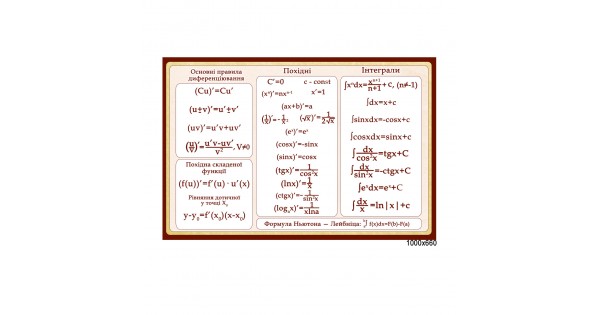 Основні правила
диференціювання
(Cu)′=Cu′
(u±v)′=u′±v′
(uv)′=u′v+uv′
(u/v)′=u′v-uv′/v², V≠0
Похідна складеної
функції
(f(u))′=f′(u) · u′(x)
Рівняння дотичної
у точці X₀
y-y₀=f′(x₀)(x-x₀)
Похідні
C′=0 c - const
(xⁿ)′=nxⁿ⁻¹ x′=1
(ax+b)′=a
(1/x)′=-1/x, (√x)′=1/2√x
(eˣ)′=eˣ
(cosx)′=-sinx
(sinx)′=cosx
(tgx)′=1/cos²x
(lnx)′=1/x
(ctgx)′=-1/sin²x
(logₐx)′=1/xlna
Інтеграли
∫xⁿdx=xⁿ⁺¹/n+1+C, (n≠-1)
∫dx=x+c
∫sinxdx=-cosx+c
∫cosxdx=sinx+c
∫dx/cos²x=tgx+C
∫dx/sin²x=-ctgx+C
∫eˣdx=eˣ+C
∫dx/x=ln|x|+c
Формула Ньютона — Лейбніца: ∫f(x)dx=F(b)-F(a)
1000x660